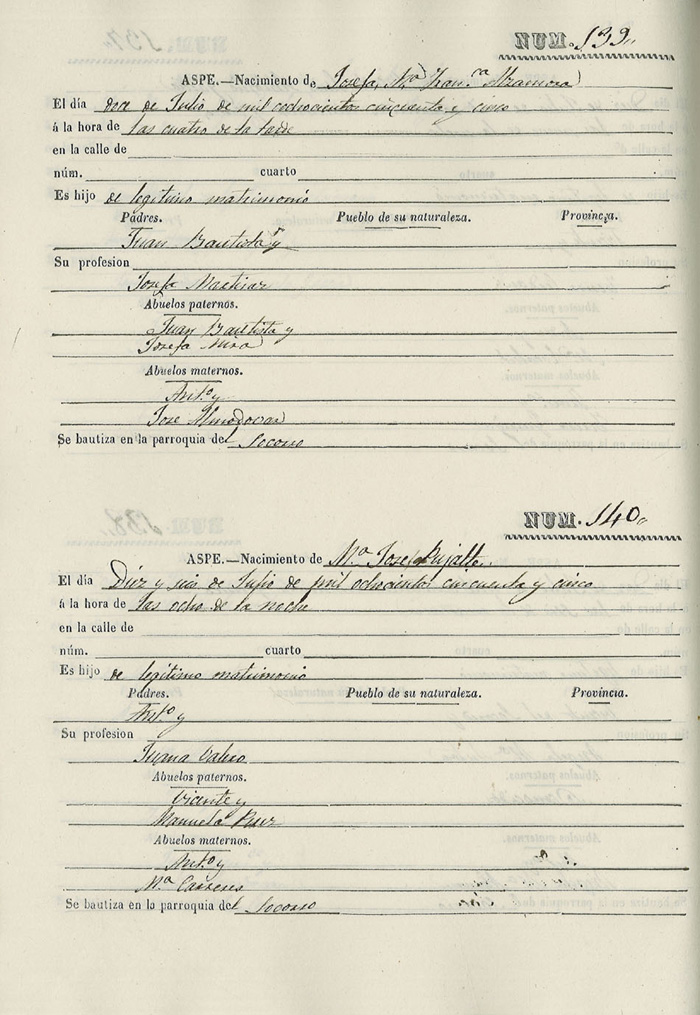 NUM. 139.
ASPE.—Nacimiento de Josefa, Mª Fran.ca Mramora
El día doce de Julio de mil ochocientos cincuenta y cinco
á la hora de las cuatro de la tarde
en la calle de
núm. cuarto
Es hijo de legitimo matrimonio
Padres. Pueblo de su naturaleza. Provincia.
Juan Bautista y
Su profesion
Josefa
Abuelos paternos.
Juan Bautista y
Josefa Mira
Abuelos maternos.
Ant.o y
Jose Almodovar
Se bautiza en la parroquia del Socorro
NUM. 140.
ASPE.—Nacimiento de M.a Josefa Pujalte.
El día Diez y seis de Julio de mil ochocientos cincuenta y cinco
á la hora de las ocho de la noche
en la calle de
núm. cuarto
Es hijo de legitimo matrimonio
Padres. Pueblo de su naturaleza. Provincia.
Ant.o y
Su profesion
Juana Calero
Abuelos paternos.
Vicente y
Manuela
Abuelos maternos.
Ant.o y
M.a Caseres
Se bautiza en la parroquia del Socorro